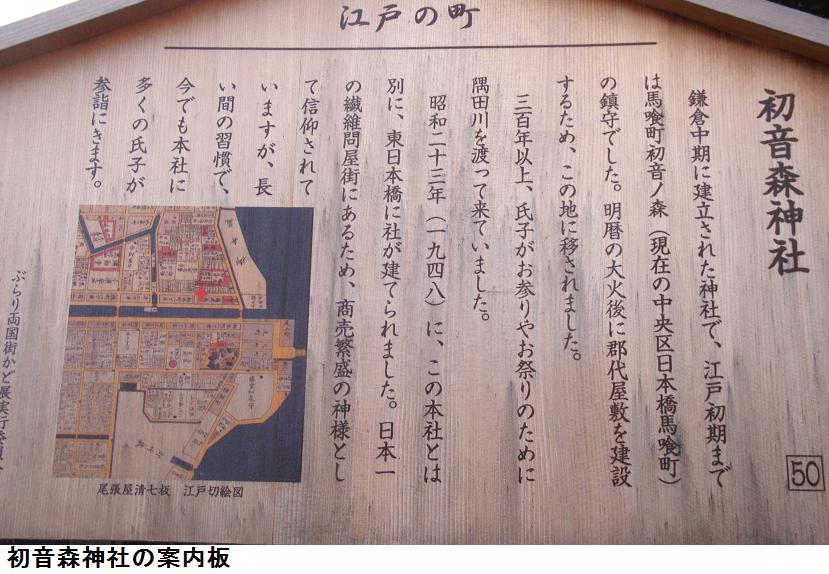 江戸の町
初音森神社
鎌倉中期に建立された神社で、江戸初期まで
は馬喰町初音ノ森（現在の中央区日本橋馬喰町）
の鎮守でした。明暦の大火後に郡代屋敷を建設
するため、この地に移されました。
三百年以上、氏子がお参りやお祭りのために
隅田川を渡って来ていました。
昭和二十三年（一九四八）に、この本社とは
別に、東日本橋に社が建てられました。日本一
の繊維問屋街にあるため、商売繁盛の神様とし
て信仰されて
いますが、長
い間の習慣で、
今でも本社に
多くの氏子が
参詣にきます。
尾張屋清七板 江戸切絵図
ぶらり両国街かど展実行委員会
50
初音森神社の案内板